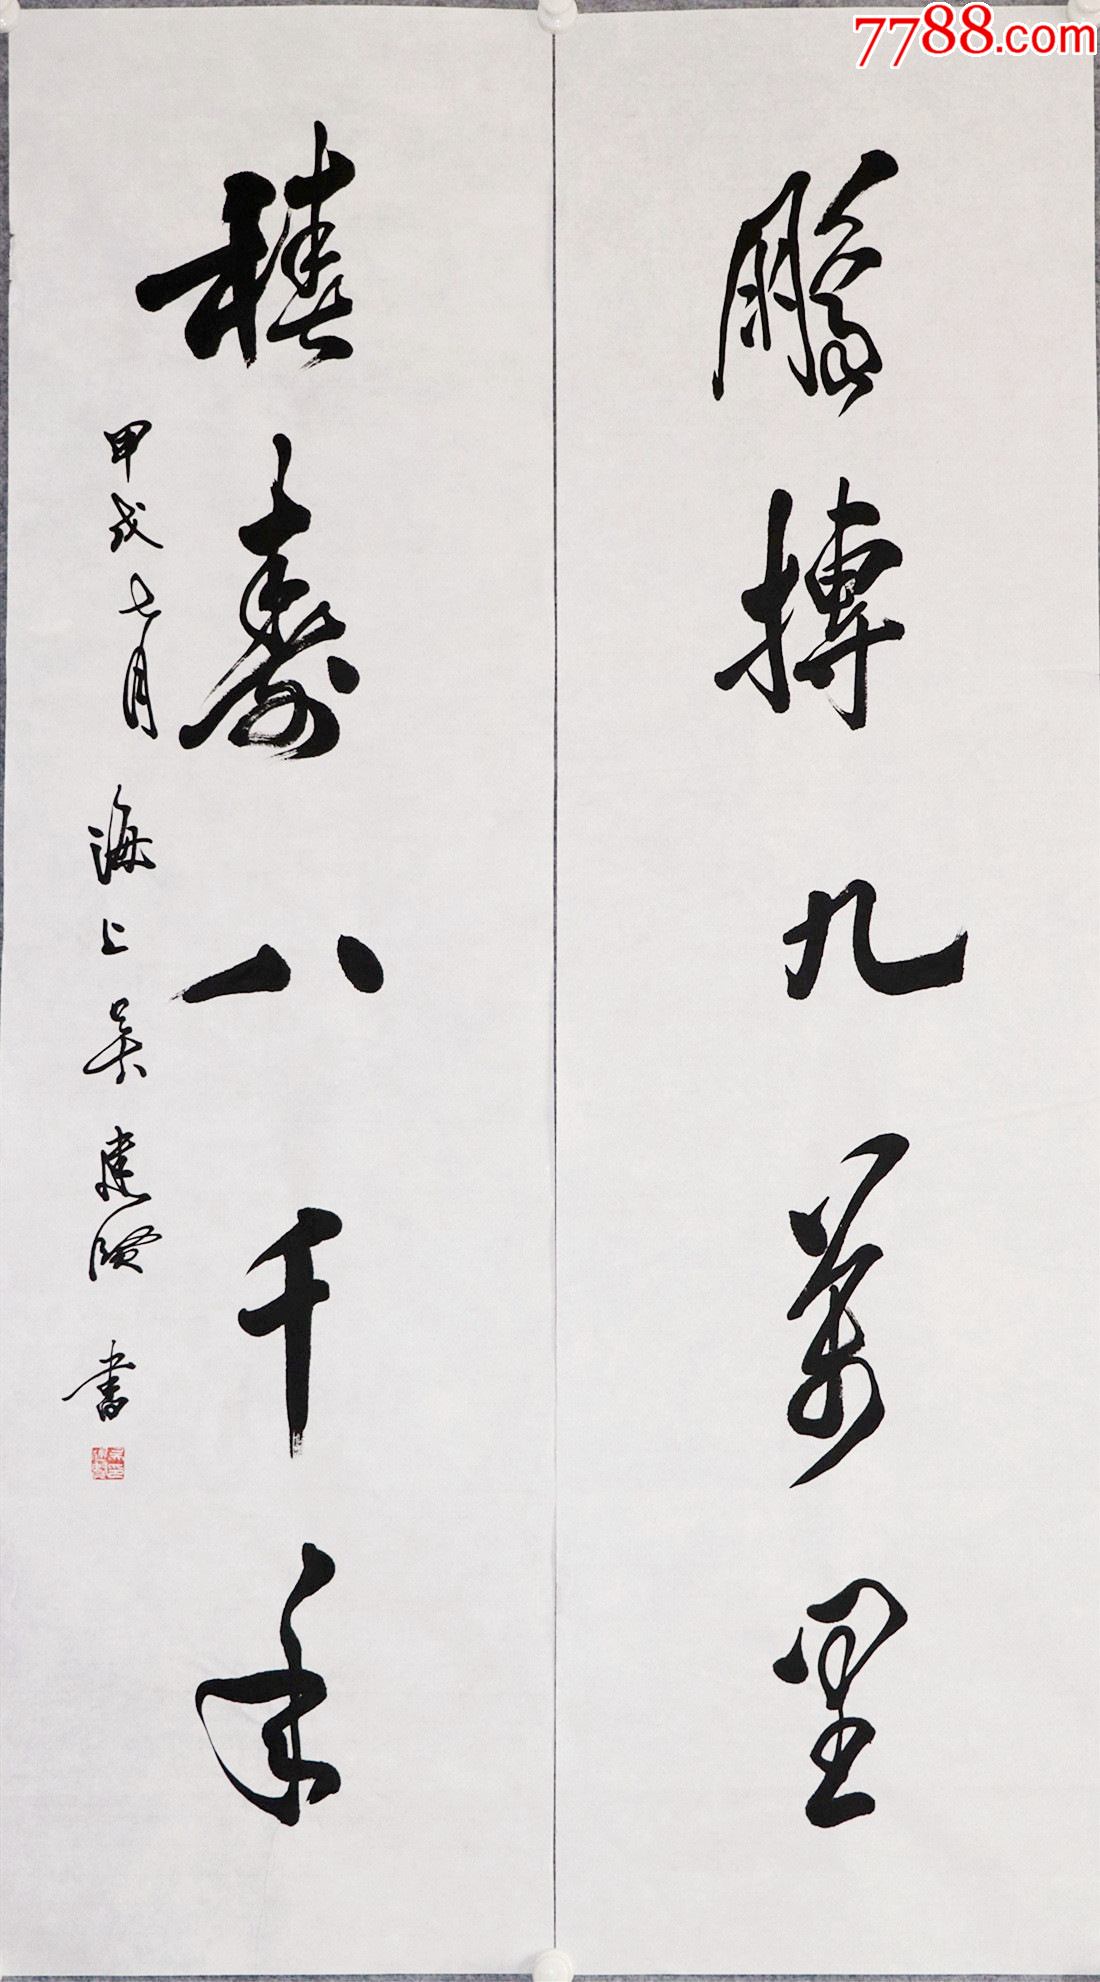 鵬搏九萬里
椿壽八千年
甲戌七月 海上吴建贤書
7788.com